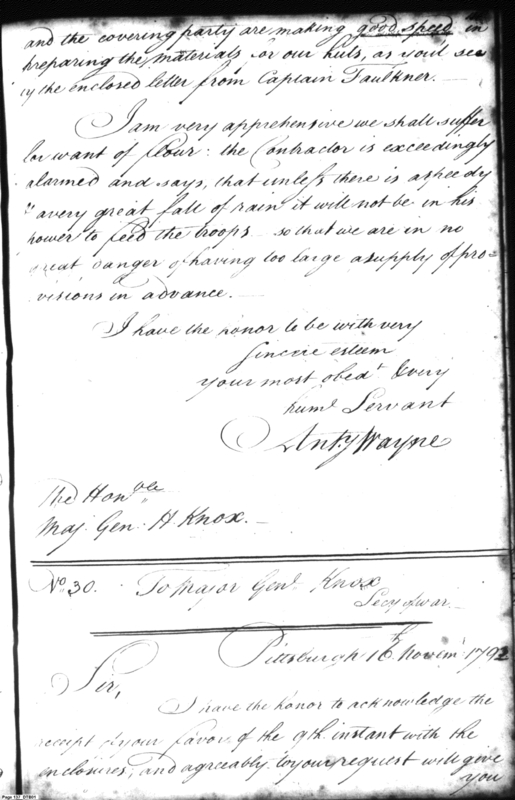 and the covering party are making good speed in
preparing the materials for our huts, as you'd see
by the enclosed letter from Captain Faulkner. —
I am very apprehensive we shall suffer
for want of flour: the Contractor is exceedingly
alarmed and says, that unless there is a speedy
& a very great fall of rain it will not be in his
power to feed the troops — so that we are in no
great danger of having too large a supply of pro=
visions in advance. —
I have the honor to be with very
sincere esteem
your most obedt & very
huml Servant
Anty Wayne
The Honble
Maj. Gen. H. Knox. —
No. 30. To Major Genl. Knox
Secy of war. —
Pittsburgh 16th Novemr 1792
Sir,
I have the honor to acknowledge the
receipt of your favor of the 9th instant with the
enclosures, and agreeably to your request will give
you
Page 157